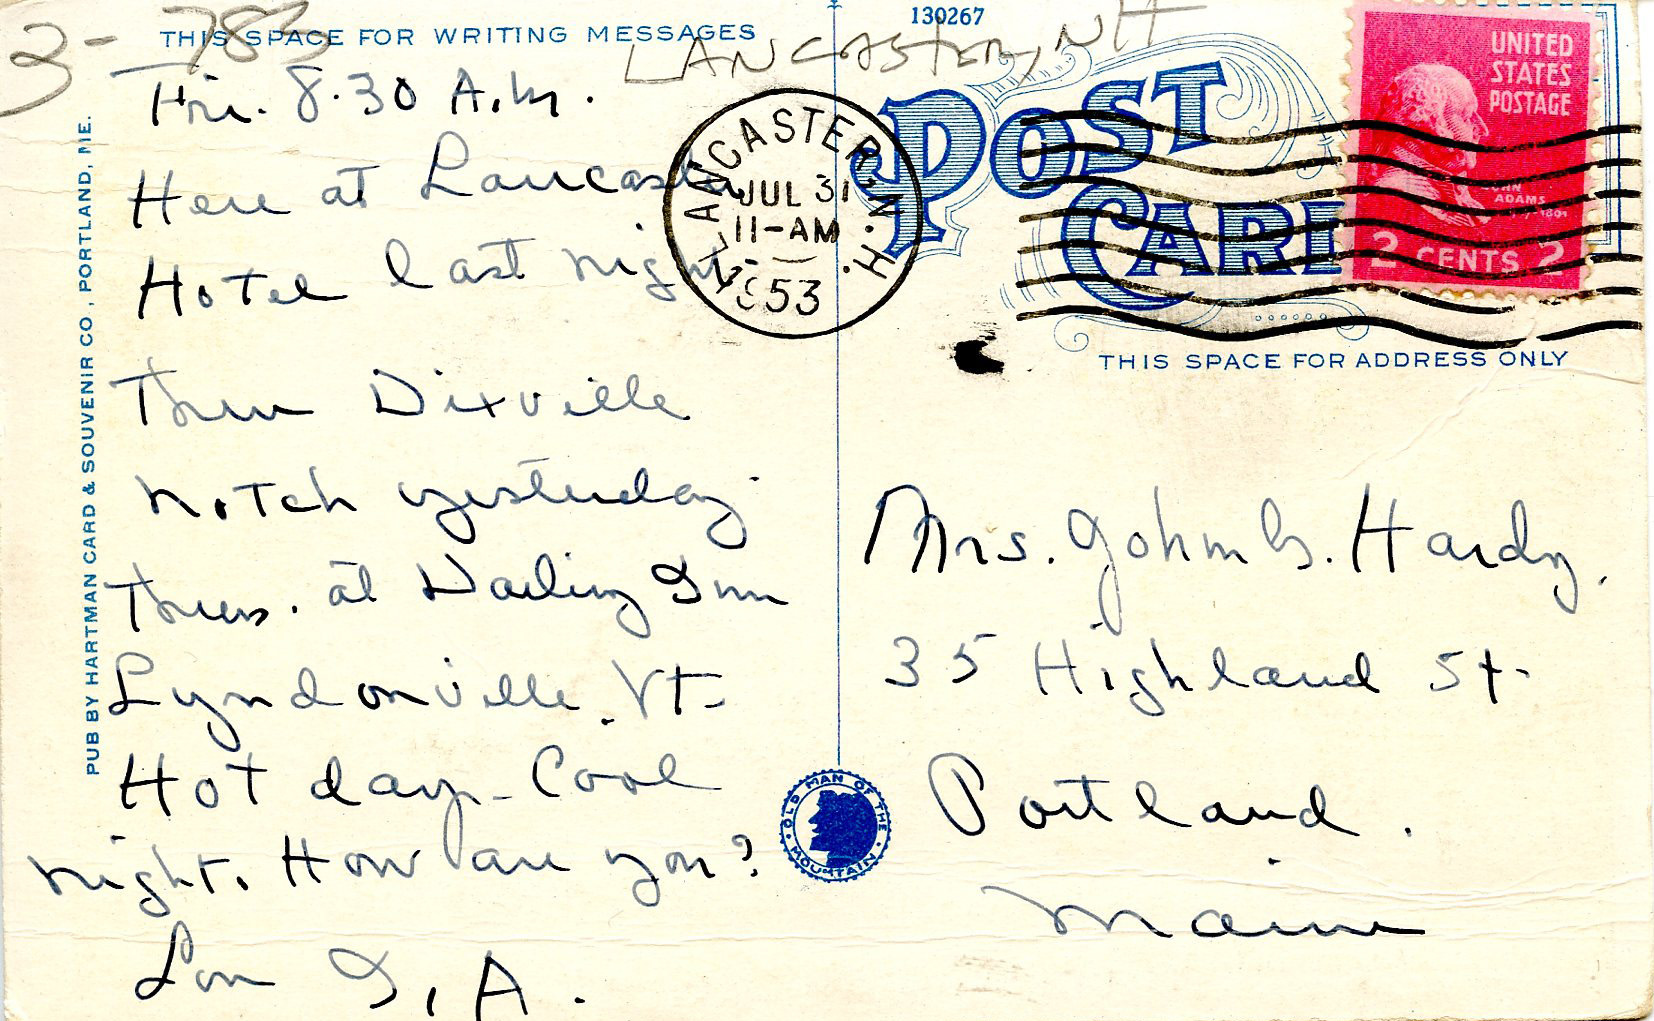 3- 783
130267
LANCASTER, NH
THIS SPACE FOR WRITING MESSAGES
PUB BY HARTMAN CARD & SOUVENIR CO., PORTLAND, ME.
Fri. 8.30 A.M.
Here at Lancaster
Hotel last night.
Thru Dixville
Notch yesterday.
Thurs. at Darling Inn
Lyndonville. Vt-
Hot day - Cool
night. How are you?
A.
LANCASTER N.H.
JUL 31
11-AM
1953
POST
CARD
UNITED
STATES
POSTAGE
JOHN
ADAMS
1797 1801
2 CENTS 2
THIS SPACE FOR ADDRESS ONLY
Mrs. John G. Hardy.
35 Highland St-
Portland.
Maine
OLD MAN OF THE MOUNTAIN